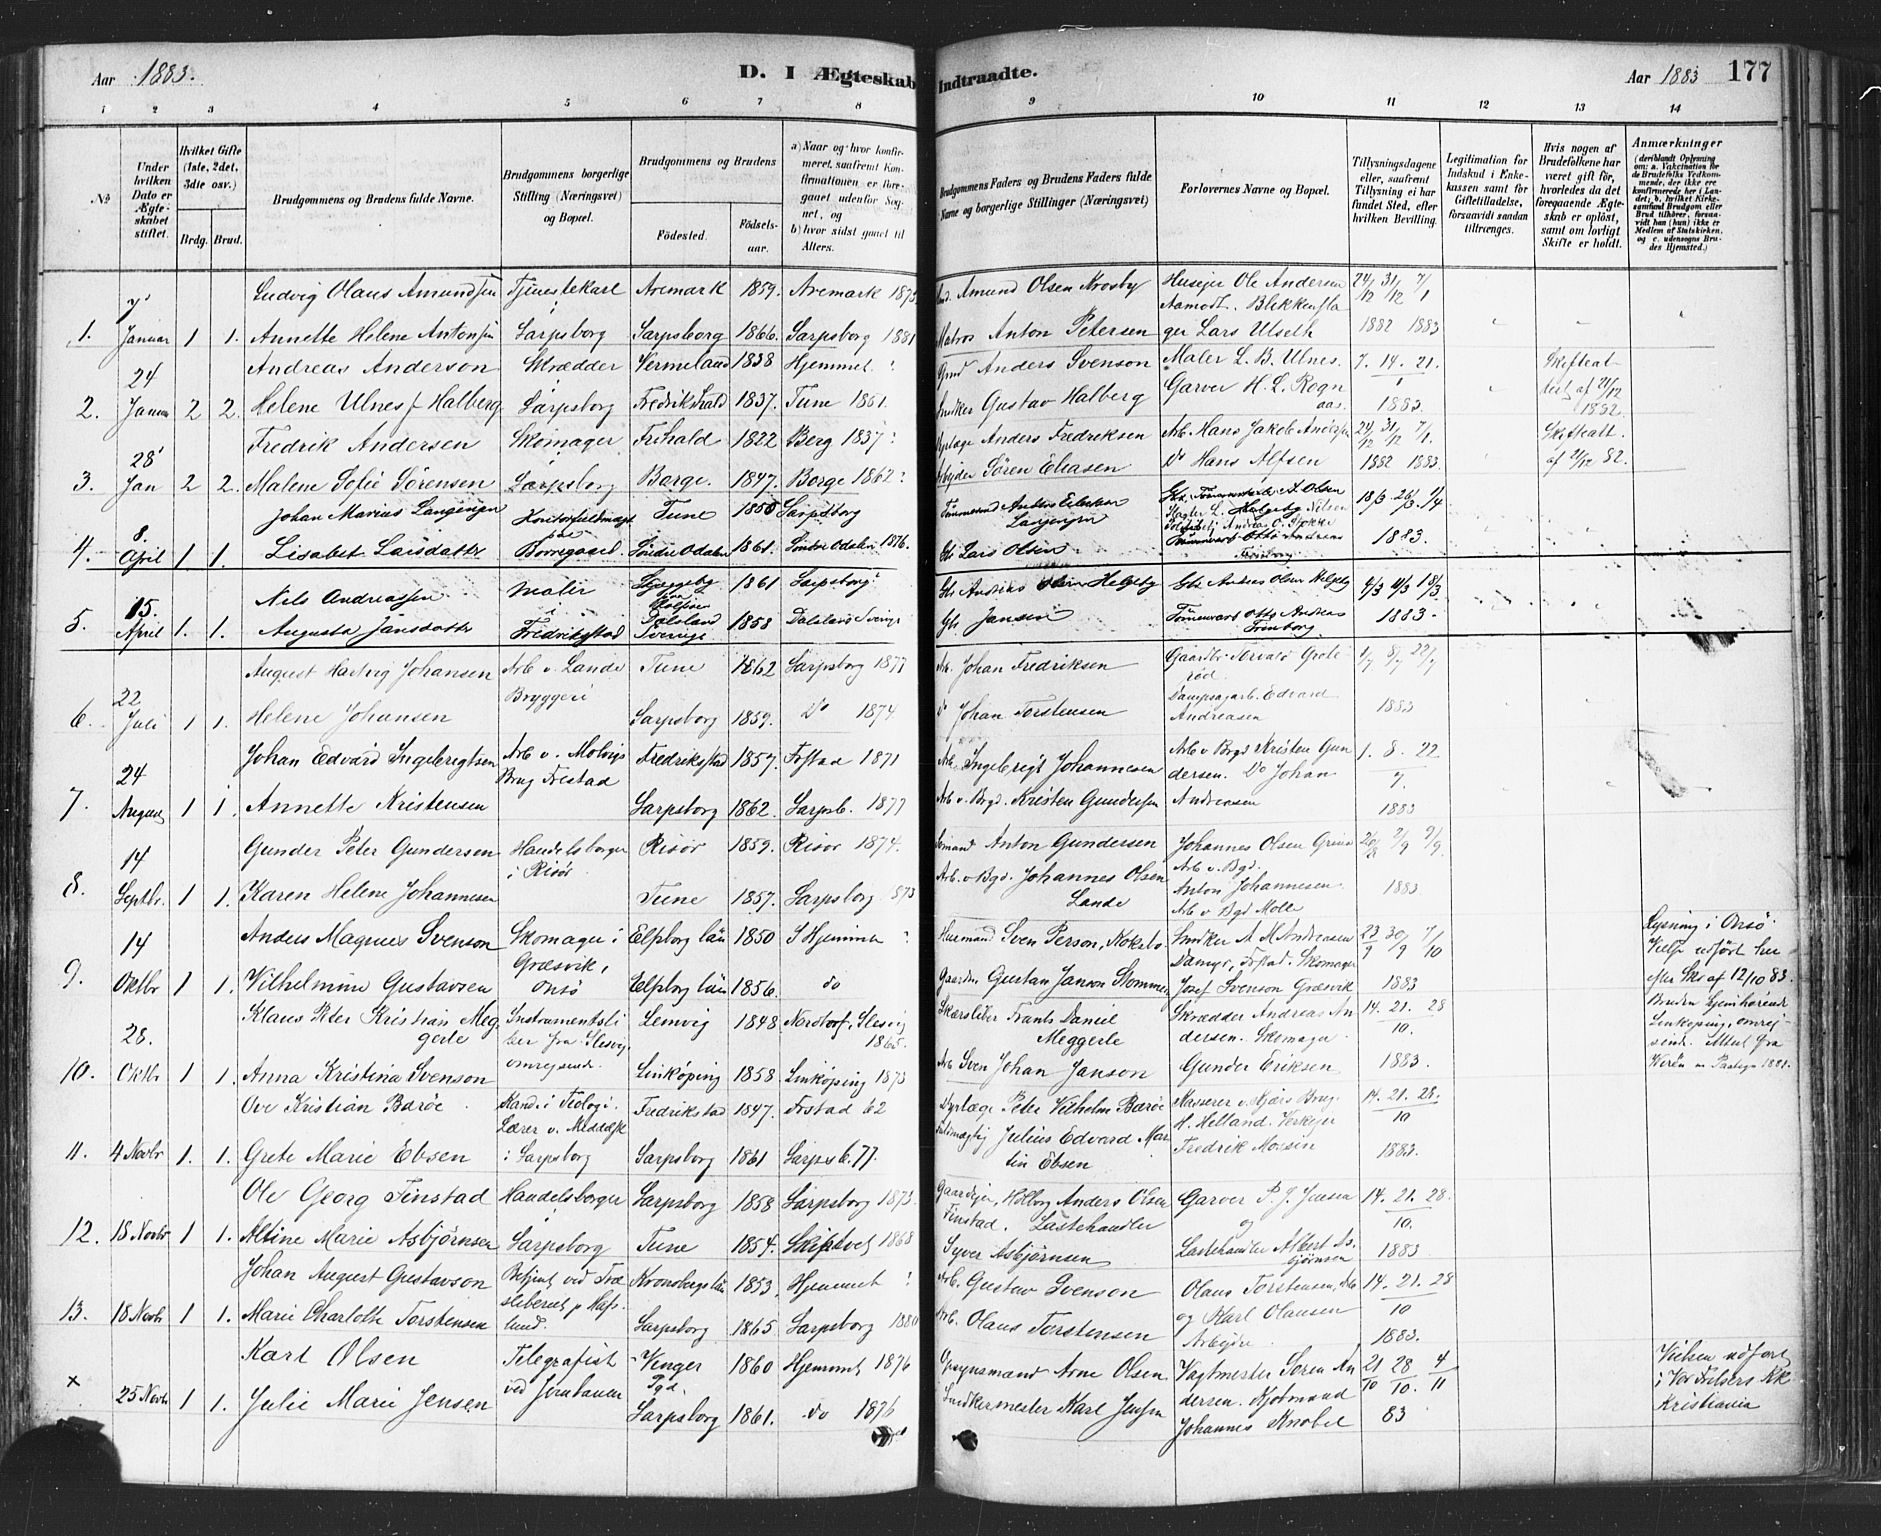 Aar 1883.
D. I Ægteskab Indtraadte.
Aar 1883
177
1 2 3 4 5 6 7 8 9 10 11 12 13 14
No
Under hvilken Dato er Ægteskabet stiftet.
Hvilket Gifte (1ste, 2det, 3die osv.)
Brdg. Brud.
Brudgommens og Brudens fulde Navne.
Brudgommens borgerlige Stilling (Næringsvei) og Bopæl.
Brudgommens og Brudens
Fødested.
Fødselsaar.
a) Naar og hvor konfirmeret, saafremt Konfirmationen er foregaaet udenfor Sognet, og
b) hvor sidst gaaet til Alters.
Brudgommens Faders og Brudens Faders fulde Navne og borgerlige Stillinger (Næringsvei)
Forlovernes Navne og Bopæl.
Tillysningsdagene eller, saafremt Tillysning ei har fundet Sted, efter hvilken Bevilling.
Legitimation for Indskud i Enkekassen samt for Giftetilladelse, forsaavidt saadan tiltrænges.
Hvis nogen af Brudefolkene har været gift før, hvorledes da det foregaaende Ægteskab er opløst, samt om lovligt Skifte er holdt.
Anmærkninger
(deriblandt Oplysning om: a. Vakcination for de Brudefolks Vedkommende, der ikke ere konfirmerede her i Landet; b. hvilket Kirkesamfund Brudgom eller Brud tilhører, forsaavidt han (hun) ikke er Medlem af Statskirken, og c. udensogns Brudes Hjemsted.)
Ludvig Olaus Amundsen Tjenestekarl Aremark 1859. Aremark 1873 Amund Olsen Krosby Husejer Ole Andersen 24/12 31/12 7/1
1. 7 Januar 1 1. Annette Helene Antonsen Sarpsborg Sarpsborg 1866. Sarpsborg 1881 Matros Anton Petersen Aamodt. Blikkenslager Lars Ulseth 1882 1883
Andreas Anderson Skrædder Vermeland 1838 Hjemmet Anders Svenson Maler L. B. Ulnes. 7. 14. 21. 1
2. 24 Januar 2 2. Helene Ulnes f. Halberg Sarpsborg Fredrikshald 1837. Tune 1861. Snedker Gustav Halberg Garver H. L. Rognaas. 1883. 1882.
Fredrik Andersen Skomager Frhald 1822 Berg 1837 Anders Fredriksen Arb. Hans Jakob Andersen 24/12 31/12 7/1 Skifteatt.
3. 28 Jan 2 2. Malene Sofie Sørensen Sarpsborg Borge. 1847. Borge 1862 Arbejder Sören Eliasen Do Hans Alfsen 1882 1883. af 21/12 82.
Johan Marius Langenjen Tune 1855 Sarpsborg Tømmermd 18/3 26/3 1/4
4. 8. April 1 1. Lisabet Larsdatter Borregaard. Søndre Odalen 1861. Søndre Odalen 1876. Gbr Lars Olsen 1883.
Nils Andreassen Maler 1861 Sarpsborg Gbr Andreas Olsen Helgeby Gbr Andreas Olsen Helgeby 4/3 11/3 18/3
5. 15. April 1. 1. Augusta Jansdatter i Fredrikstad Dalsland Sverige 1858 Dalsland Sverige Gbr Jansen Tømmerv Otto Andreas 1883.
August Hartvig Johansen Arb v. Lande Bryggeri Tune 1862 Sarpsborg 1877 Arb. Johan Fredriksen 1/7 8/7 22/7
6. 22 Juli 1 1. Helene Johansen Sarpsborg 1859. Do 1874. Do Johan Torstensen Dampsagarb. Edvard Andreasen 1883
Johan Edvard Ingebregtsen Arb v. Molvigs Brug Frestad Fredriksstad 1857. Frstad 1871 Arb. Ingebrigt Johannesen Arb v Brgs Kristen Gundersen. Do Johan 1. 8. 22 7.
7. 24 August 1 1. Annette Kristensen Sarpsborg 1862. Sarpsb. 1877 Arb. v. Brgd. Kristen Gundersen Andreasen 1883
Gunder Peter Gundersen Handelsborger i Risör Risör 1859. Risör 1874. Sömand Anton Gundersen Johannes Olsen 26/8 2/9 9/9
8. 14 Septbr. 1 1. Karen Helene Johannesen Tune 1857. Sarpsborg 1873 Arb. v. Bgd. Johannes Olsen Lande Arb v. Bgd. Anton Johannesen Arb v Bgd Molle 1883
Anders Magnus Svenson Skomager i Græsvik, Onsö Elfsborg län 1850 I Hjemmet Husmand Sven Person, Snedker A. M. Andreasen 23/9 30/9 7/10 Lysning i Onsö. Vielse udført her
9. 14 Oktbr 1 1. Vilhelmine Gustavsen Elfsborg län 1856. do Gustav Janson Frstad. Skomager Josef Svenson Græsvik 1883 efter Skr af 12/10 83.
Klaus Peter Kristian Meggerle Instrumentsliber fra Slesvig omrejsende. Lemvig 1848 Nordtorf, Slesvig 1865. Skærsliber Frants Daniel Meggerle Skrædder Andreas Andersen. Skomager 14. 21. 28 10. Bruden hjemhørende Linköping,
10. 28. Oktbr 1 1. Anna Kristina Svenson Linköping 1858 Linköping 1873 Arb Sven Johan Janson Gunder Eriksen 1883. 1881.
Ove Kristian Baröe. Kand. i Teologi. Lærer v. Middelsk i Sarpsborg Fredrikstad 1847. Frstad 62 Dyrlæge Peter Vilhelm Baröe Kasserer v. Hjørs Brug H. Helland. Verksejer 14. 21. 28. 10
11. 4 Novbr 1. 1. Grete Marie Ebsen Sarpsborg 1861 Sarpsb. 77. Fuldmægtig Julius Edvard Martin Ebsen Fredrik Morsin 1883.
Ole Georg Finstad Handelsborger Sarpsborg 1858 Sarpsborg 1873. Gaardejer, Anders Olsen Finstad. Garver P. J. Jensen 14. 21. 28. 10.
12. 18 Novbr 1 1. Alvine Marie Asbjørnsen Sarpsborg Tune 1854. Skiptvet 1868 Læstehandler Syver Asbjørnsen og Læstehandler Albert Asbjørnsen 1883
Johan August Gustavson Betjent ved Træsliberiet p Hafslund. Kronobergs län 1853, Hjemmet Arb. Gustav Svenson Olaus Torstensen, Arb 14. 21. 28 10
13. 18 Novbr 1 1. Marie Charlotte Torstensen Sarpsborg 1865 Sarpsborg 1880 Arb. Olaus Torstensen og Karl Olausen Arbejdre. 1883.
Karl Olsen Telegrafist ved Jernbanen Vinger Pgd. 1860 Hjemmet 1876 Opsynsmand Arne Olsen Vagtmester Soren Andersen. Kjøbmand 21/10 28/10. 4/11 Vielsen udført i Vor Frelsers Kk
x 25 Novbr 1 1. Julie Marie Jensen Sarpsborg 1861. do 1876 Snedkermester Karl Jensen Johannes Knobel 83 Kristiania